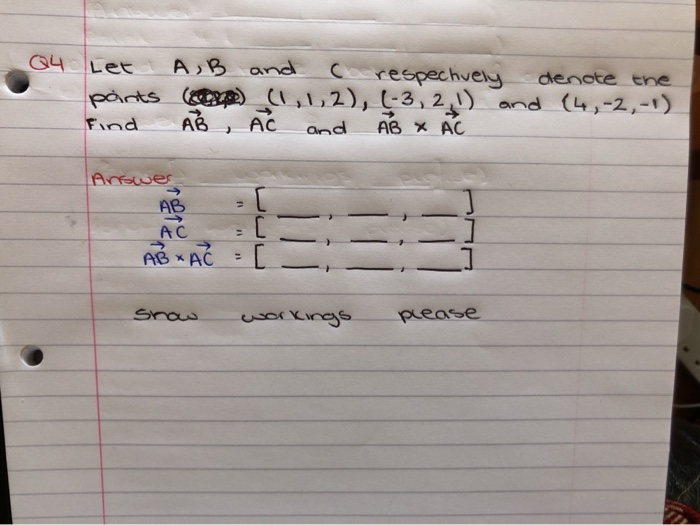 Q4 Let A, B and C respechvely denote the
points (1,1,2), (-3, 2, 1) and (4,-2,-1)
Find AB, AC and AB × AC
Answer
AB = [ __, __, __ ]
AC = [ __, __, __ ]
AB × AC = [ __, __, __ ]
show workings please